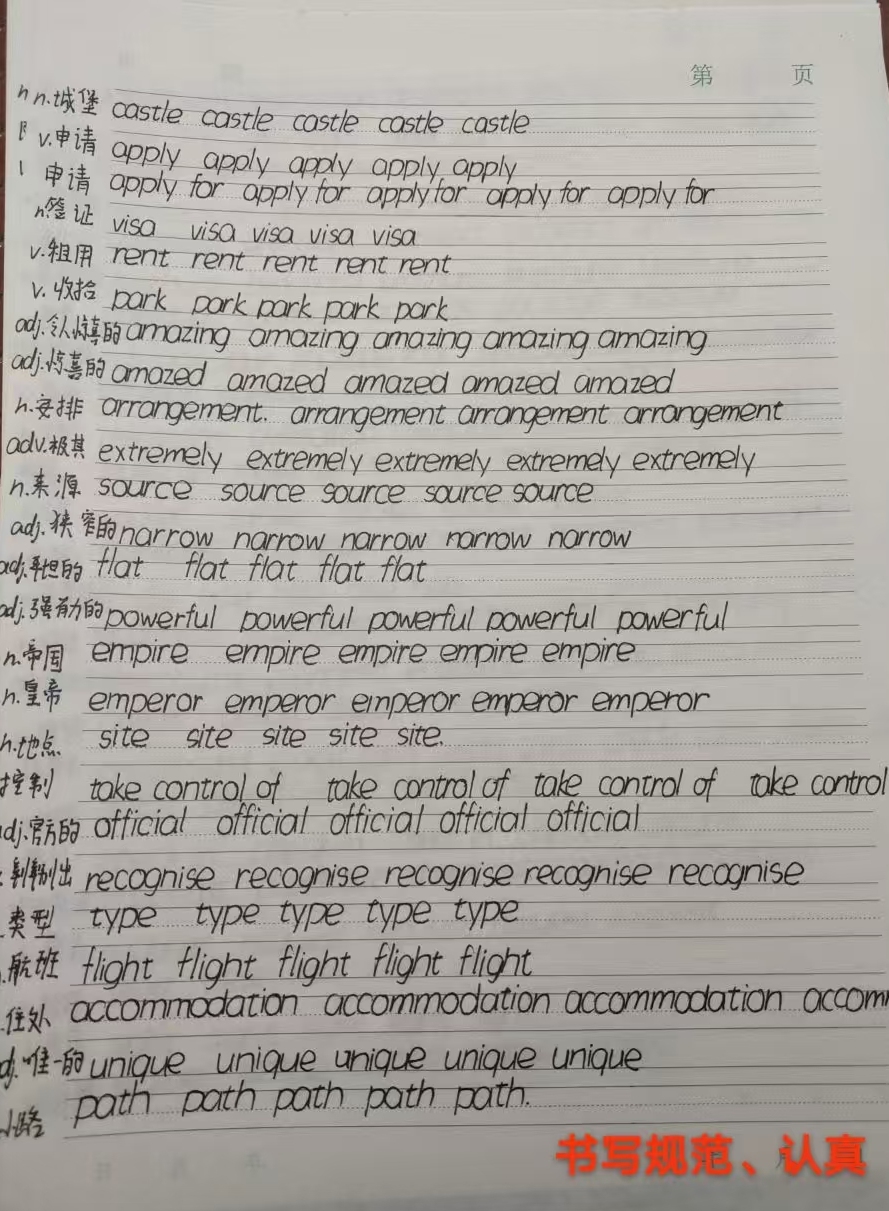 第 页
n n.城堡 castle castle castle castle castle
v.申请 apply apply apply apply apply
申请 apply for apply for apply for apply for apply for
n.签证 visa visa visa visa visa
v.租用 rent rent rent rent rent
v.收拾 park park park park park
adj.令人惊喜的 amazing amazing amazing amazing amazing
adj.惊喜的 amazed amazed amazed amazed amazed
n.安排 arrangement. arrangement arrangement arrangement
adv.极其 extremely extremely extremely extremely extremely
n.来源 source source source source source
adj.狭窄的 narrow narrow narrow narrow narrow
adj.平坦的 flat flat flat flat flat
adj.强有力的 powerful powerful powerful powerful powerful
n.帝国 empire empire empire empire empire
n.皇帝 emperor emperor emperor emperor emperor
n.地点 site site site site site.
控制 take control of take control of take control of take control
adj.官方的 official official official official official
recognise recognise recognise recognise recognise
.类型 type type type type type
.航班 flight flight flight flight flight
.住处 accommodation accommodation accommodation accomm
dj.唯一的 unique unique unique unique unique
小路 path path path path path.
书写规范、认真